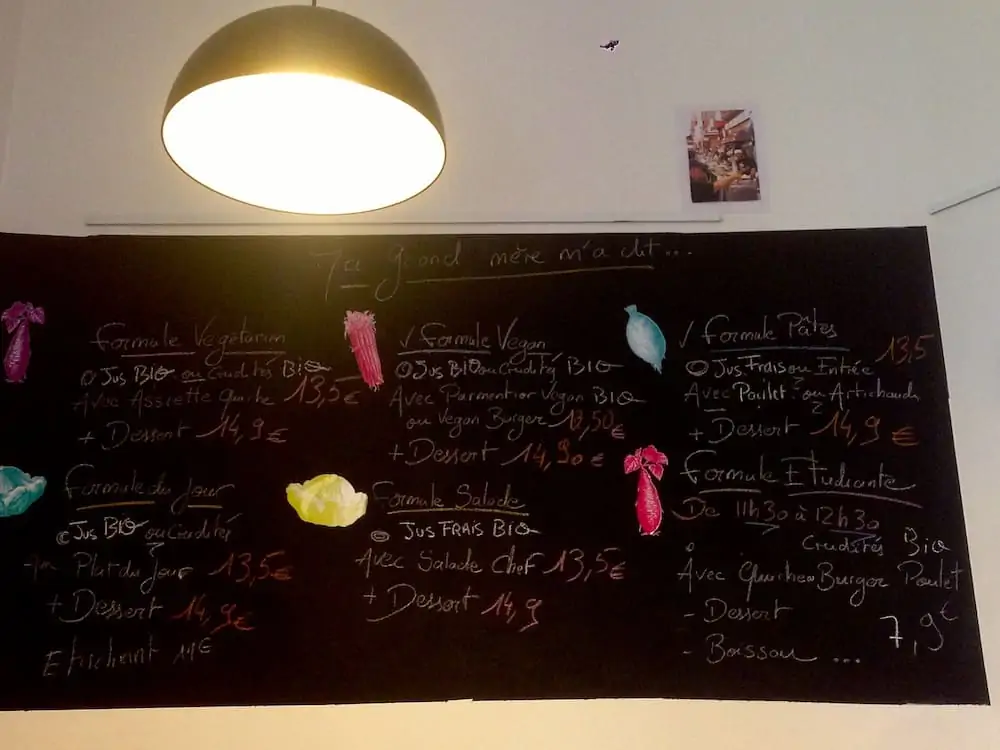 Ma grand mère m'a dit...
Formule Végétarien
Jus BIO ou Crudités BIO
Avec Assiette Quiche 13,5€
+ Dessert 14,9€
✓ Formule Vegan
Jus BIO ou Crudité BIO
Avec Parmentier Vegan BIO
ou Vegan Burger 13,50€
+ Dessert 14,90€
✓ Formule Pâtes
13,5
Jus Frais ou Entrée
Avec Poulet ou Artichauds
+ Dessert 14,9€
Formule du Jour
Jus BIO ou Crudités
Plat du Jour 13,5€
+ Dessert 14,9€
Etudiant 11€
Formule Salade
JUS FRAIS BIO
Avec Salade Chef 13,5€
+ Dessert 14,9
Formule Etudiante
De 11h30 à 12h30
Crudités Bio
Avec Quiche Burger Poulet
- Dessert
7,9€
- Boisson ...